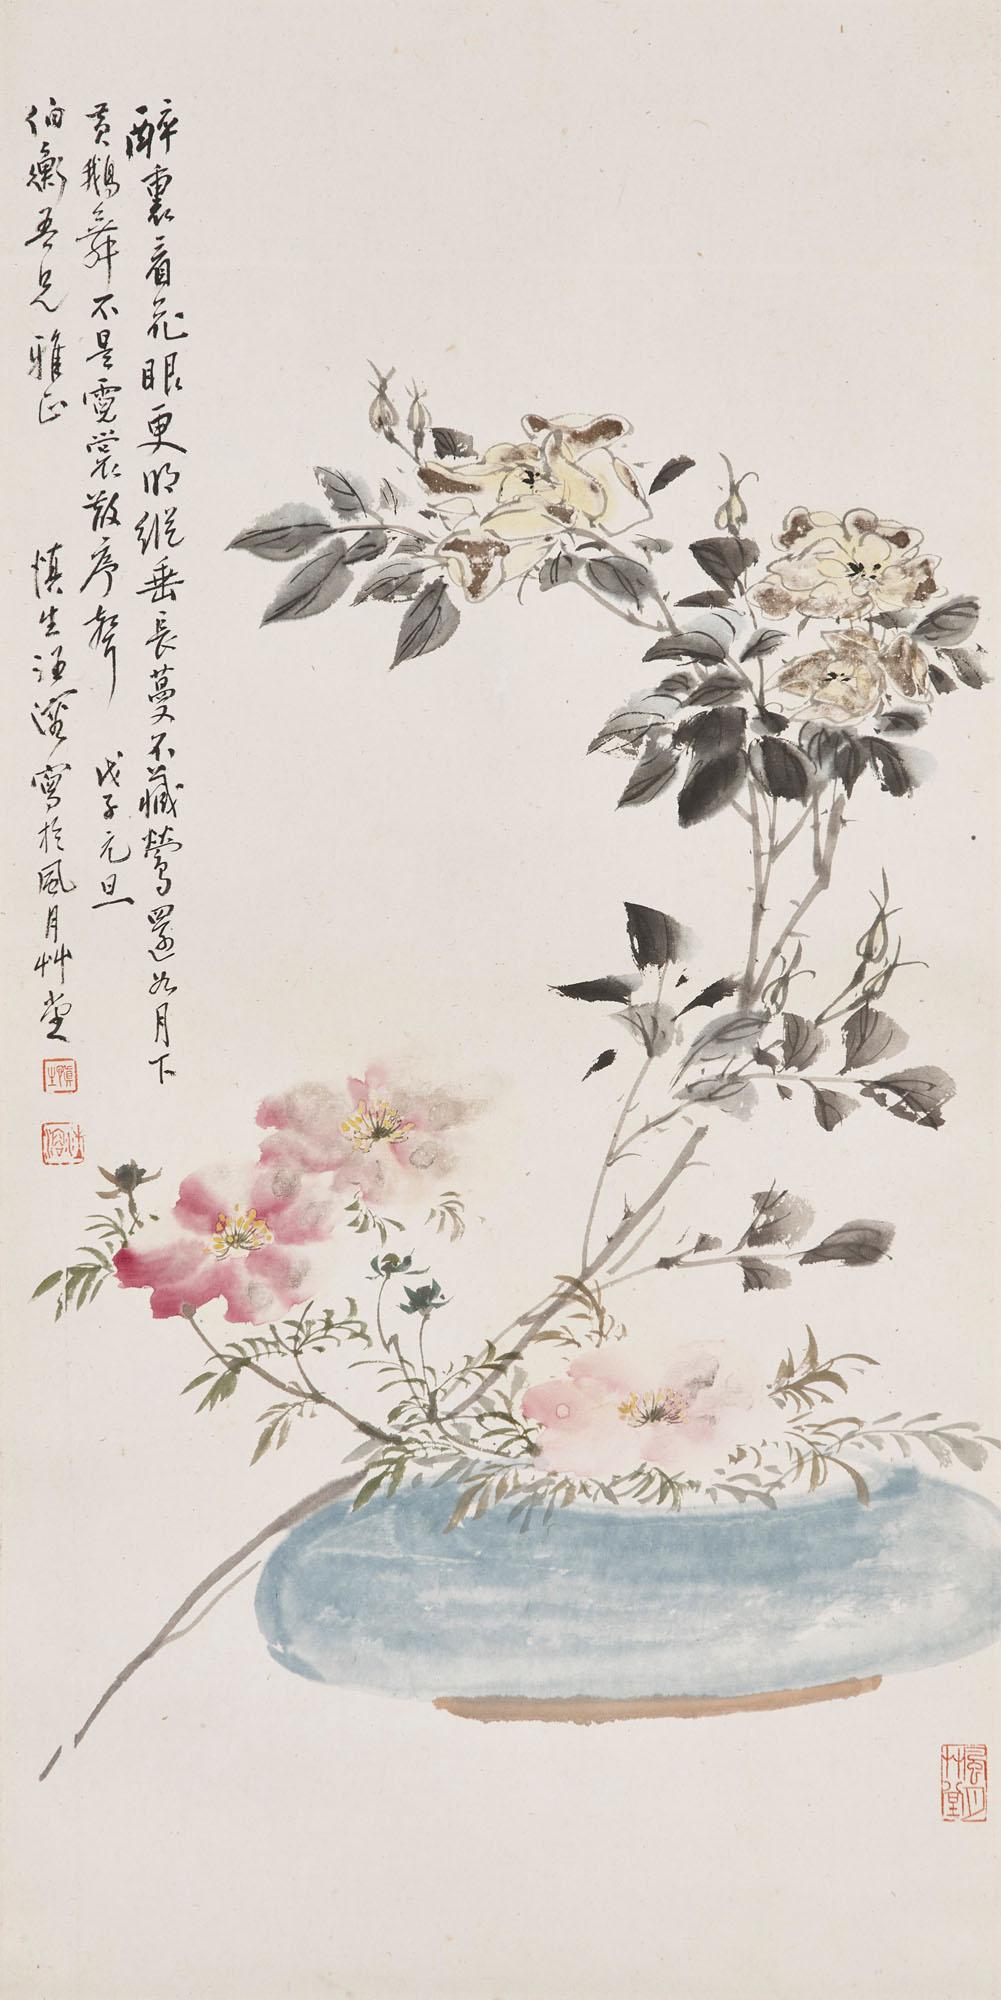 醉裏看花眼更明縱垂長蔓不藏鶯還如月下
黃鵝舞不是霓裳散序聲
戊子元旦
伯衡吾兄雅正
慎生汪溶寫於風月艸堂
慎生
汪溶
風月艸堂